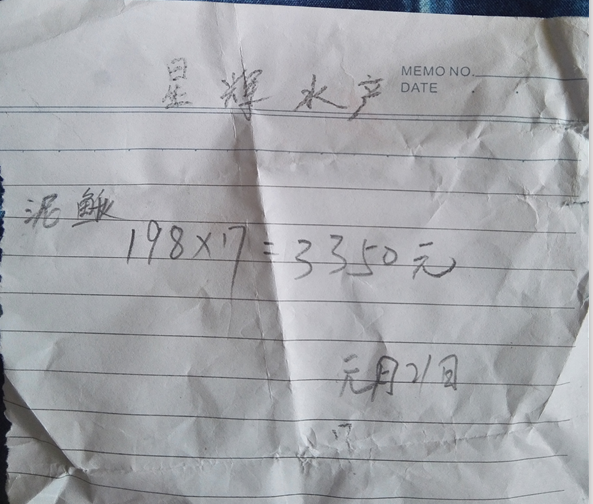 星辉水产
MEMO NO.
DATE
泥鳅
198×17=3350元
元月21日